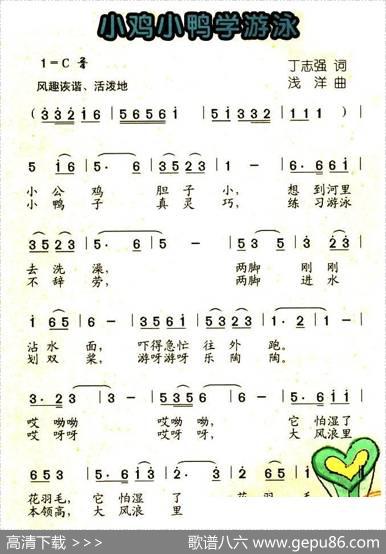 小鸡小鸭学游泳
1=C 2/4
丁志强 词
风趣诙谐、活泼地
浅洋 曲
(3 3 2 1 6 | 5 6 5 6 1 | 5 1 3 3 2 | 1 1 1) |
5 1 6 | 5· 6 | 3 5 2 3 | 1 - | 6· 5 3 5 |
小 公 鸡 胆 子 小, 想 到河里
小 鸭 子 真 灵 巧, 练 习游泳
3 5 2 3 | 5· 6 | 5 - | 5 3 5 | 3 2 3 |
去 洗 澡, 两脚 刚 刚
不 辞 劳, 两脚 进 水
1 6 5 | 6 - | 3 5 6 1 | 6 5 3 5 2 3 | 1· 2 | 1 - |
沾 水 面, 吓得急忙 往 外 跑。
划 双 桨, 游呀游呀 乐 陶 陶。
3· 2 3 | 6 - | 2· 1 2 | 5 - | 5· 6 1 1 |
哎 呦呦 哎呦 呦, 它 怕湿了
哎 呀呀 哎呀 呀, 大 风浪里
6 5 3 | 5· 6 1 1 | 2· 3
花羽毛, 它 怕湿 了 花
本领高, 大 风浪 里
高清下载 >>>
歌谱八六 www.gepu86.com